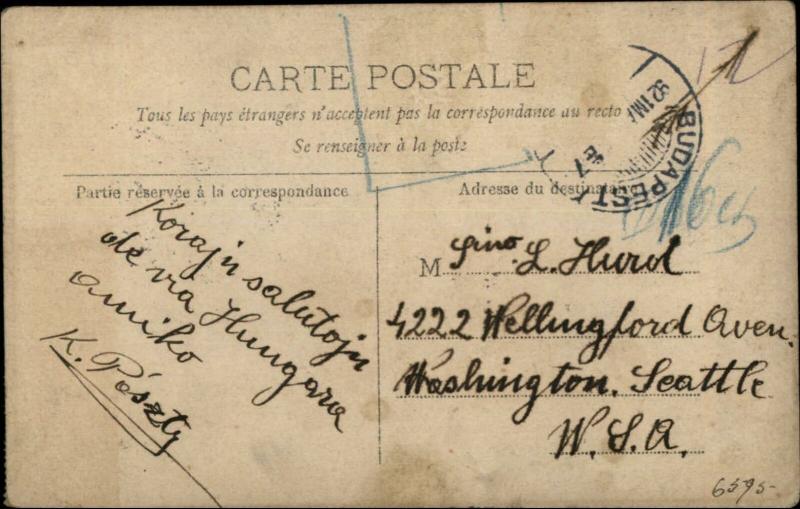 CARTE POSTALE
Tous les pays étrangers n'acceptent pas la correspondance au recto
Se renseigner à la poste
Partie réservée à la correspondance
Adresse du destinataire
BUDAPEST
Korajn salutojn
de via Hungara
amiko
K. Pászty
M Sino L. Hurd
4222 Wellingford Aven.
Washington. Seattle
W. S. A.
6595-